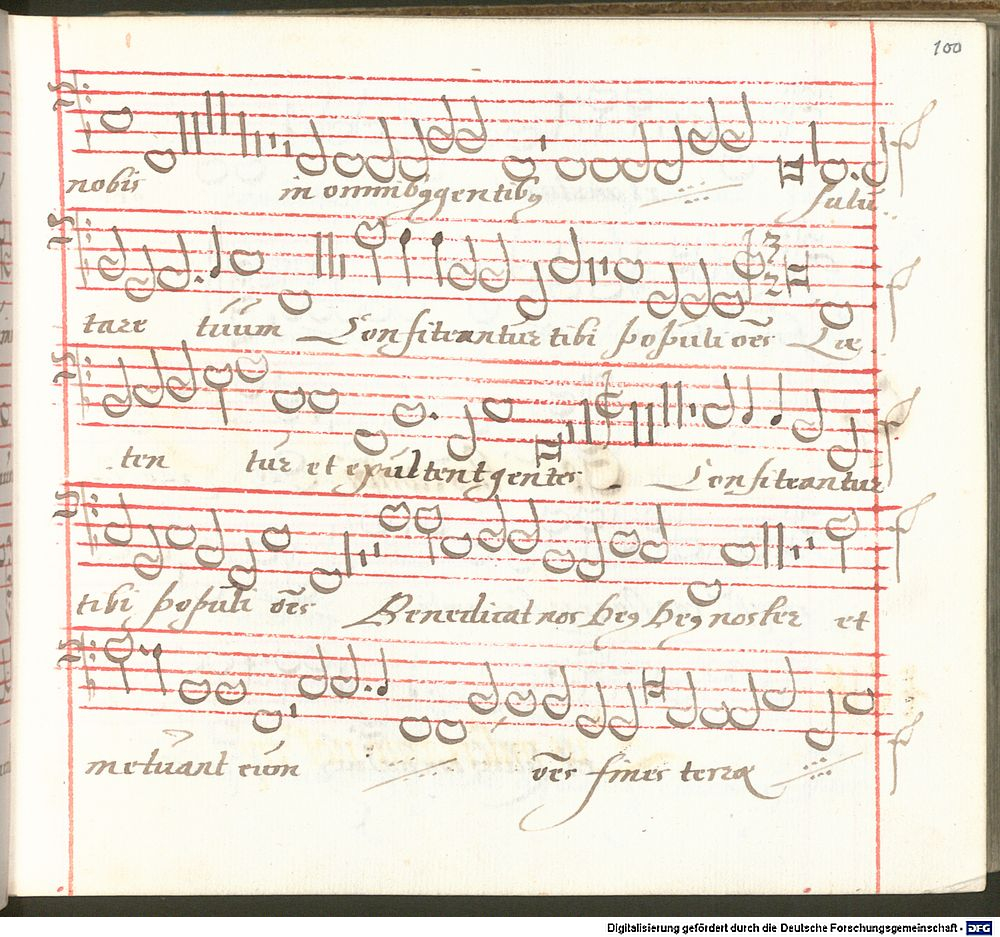 100
nobis in omnibꝰ gentibꝰ salu
3
2
tare tuum Confiteantur tibi populi oēs Læ
ten tur et exultent gentes Confiteantur
tibi populi oēs Benedicat nos Deꝰ Deꝰ noster et
metuant eum oēs fines terræ
Digitalisierung gefördert durch die Deutsche Forschungsgemeinschaft - DFG